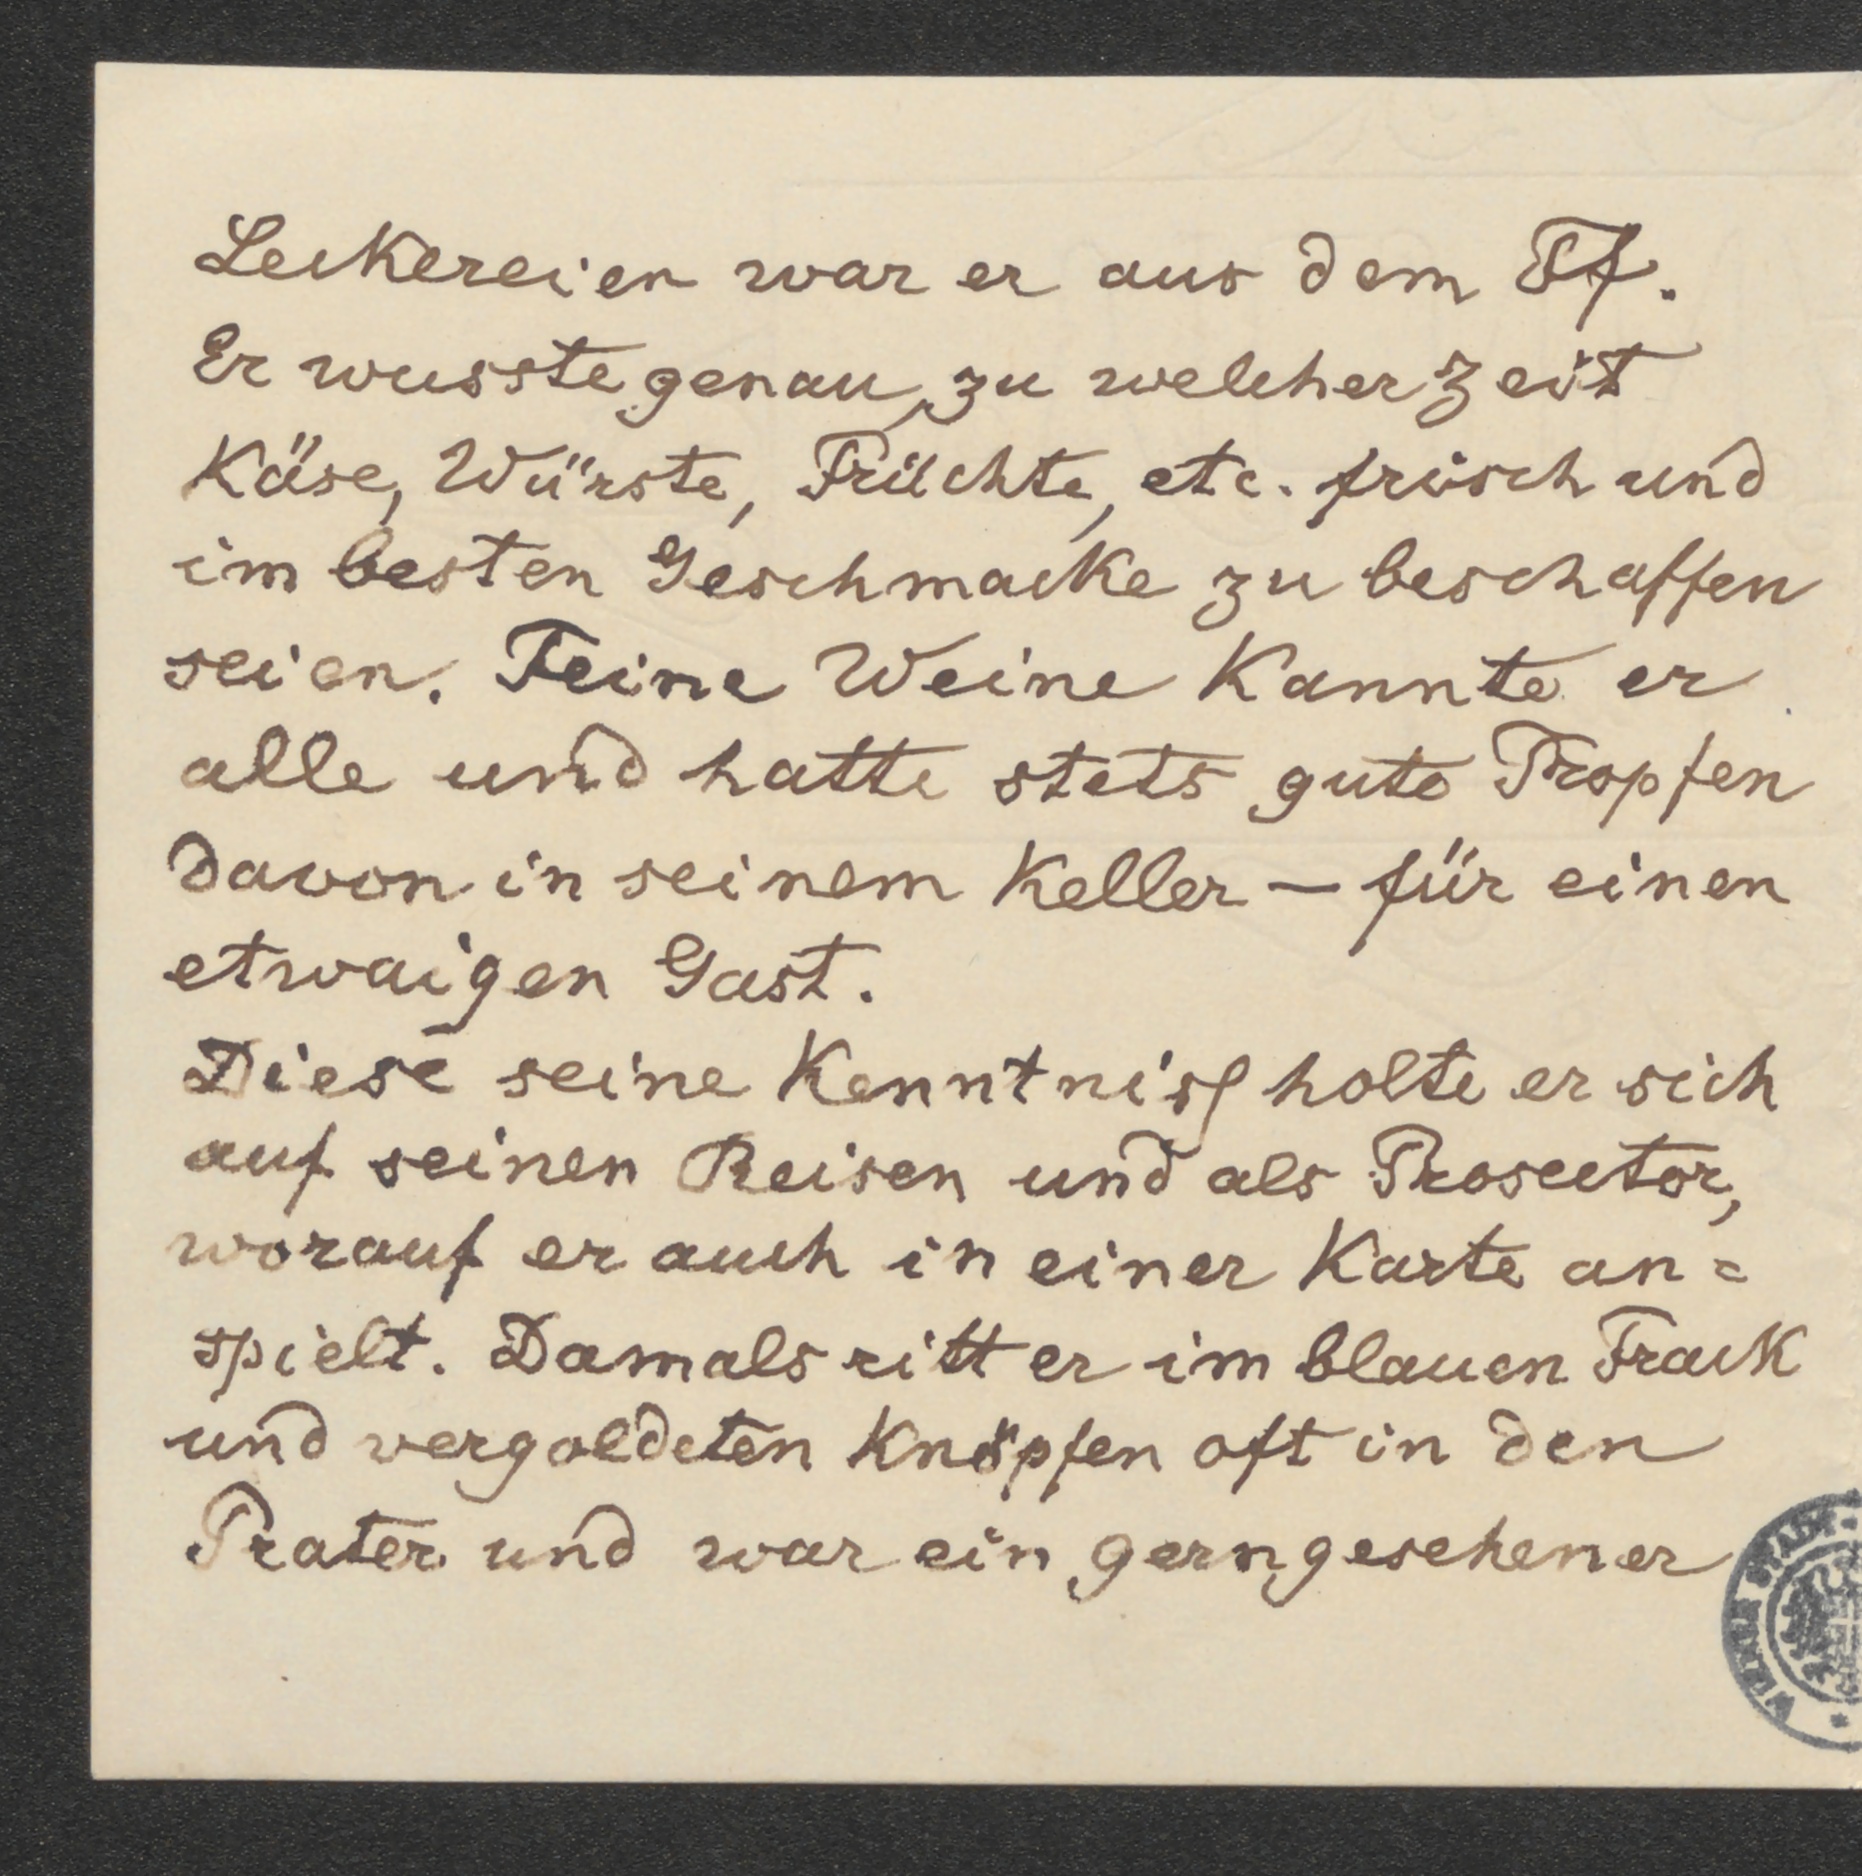 Leckereien war er aus dem Ff.
Er wusste genau, zu welcher Zeit
Käse, Würste, Früchte, etc. frisch und
im besten Geschmacke zu beschaffen
seien. Feine Weine kannte er
alle und hatte stets gute Tropfen
davon in seinem Keller — für einen
etwaigen Gast.
Diese seine Kenntniß holte er sich
auf seinen Reisen und als Prosector,
worauf er auch in einer Karte an=
spielt. Damals ritt er im blauen Frack
und vergoldeten Knöpfen oft in den
Prater und war ein gerngesehener
WIENER STADT-